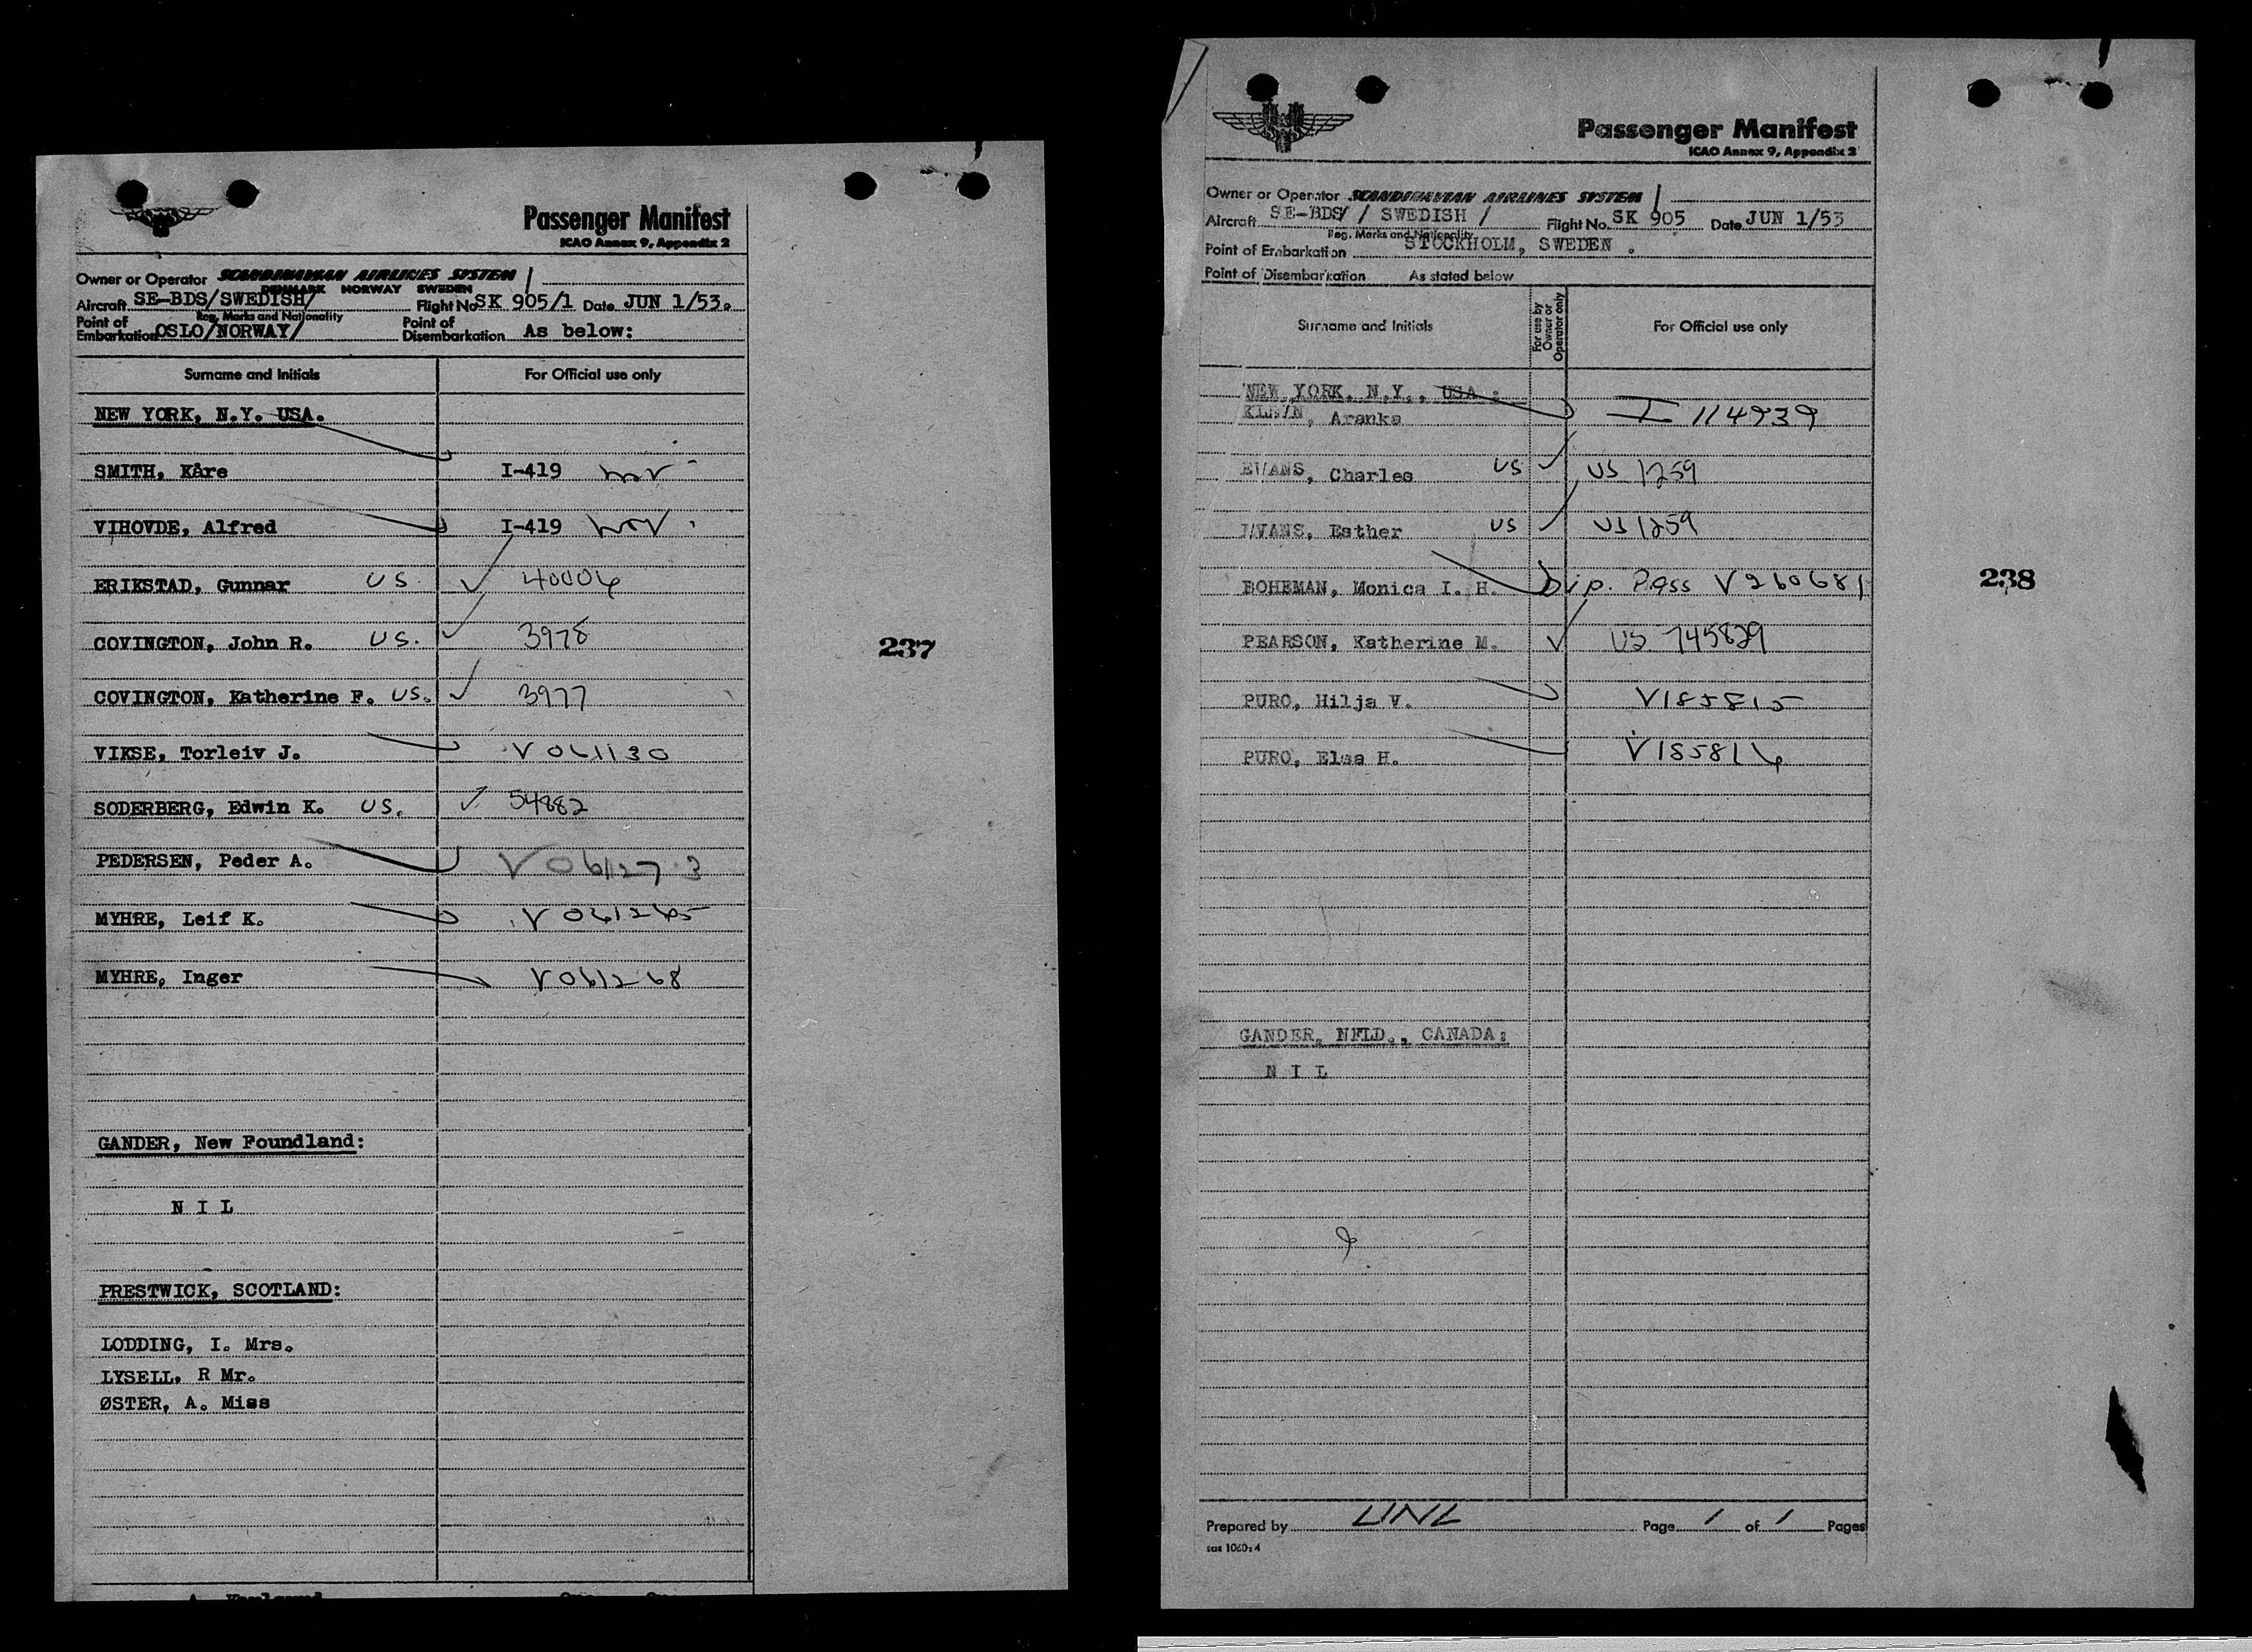 Passenger Manifest
ICAO Annex 9, Appendix 2
Owner or Operator SCANDINAVIAN AIRLINES SYSTEM /
DENMARK NORWAY SWEDEN
Aircraft SE-BDS/SWEDISH/ Flight No SK 905/1 Date JUN 1/53.
Reg. Marks and Nationality
Point of Embarkation OSLO/NORWAY/ Point of Disembarkation As below:
Surname and Initials For Official use only
NEW YORK, N.Y. USA.
SMITH, Kåre I-419
VIHOVDE, Alfred I-419
ERIKSTAD, Gunnar US 40006
COVINGTON, John R. US. 3978
COVINGTON, Katherine F. US. 3977
VIKSE, Torleiv J. V 061130
SODERBERG, Edwin K. US. 54882
PEDERSEN, Peder A. V 061273
MYHRE, Leif K. V 061265
MYHRE, Inger V 061268
GANDER, New Foundland:
N I L
PRESTWICK, SCOTLAND:
LODDING, I. Mrs.
LYSELL, R Mr.
ØSTER, A. Miss
237
Passenger Manifest
ICAO Annex 9, Appendix 2
Owner or Operator SCANDINAVIAN AIRLINES SYSTEM /
Aircraft SE-BDS/ / SWEDISH / Flight No. SK 905 Date JUN 1/53
Reg. Marks and Nationality
Point of Embarkation STOCKHOLM, SWEDEN .
Point of Disembarkation As stated below
Surname and Initials For use by Owner or Operator only For Official use only
NEW YORK, N.Y., USA :
Aranka I 114939
EVANS, Charles US US 1259
EVANS, Esther US US 1259
BOHEMAN, Monica I. H. Dip. Pass V 260681
PEARSON, Katherine M. US 745829
PURO, Hilja V. V185815
PURO, Elsa H. V185816
GANDER, NFLD., CANADA:
N I L
Prepared by Page 1 of 1 Pages
sas 1060:4
238